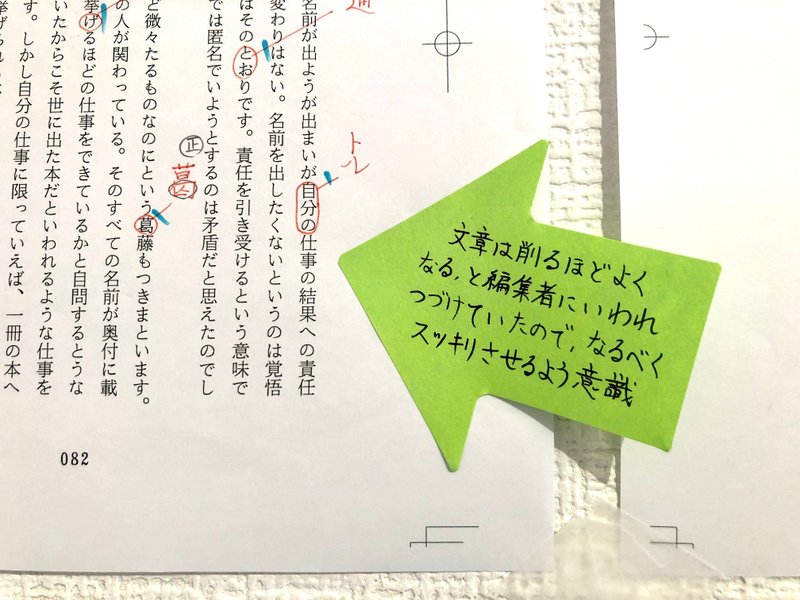 名前が出ようが出まいが自分の仕事の結果への責任
変わりはない。名前を出したくないというのは覚悟
はそのとおりです。責任を引き受けるという意味で
では匿名でいようとするのは矛盾だと思えたのでし
ど微々たるものなのにという葛藤もつきまといます。
の人が関わっている。そのすべての名前が奥付に載
挙げるほどの仕事をできているかと自問するとうな
いたからこそ世に出た本だといわれるような仕事を
す。しかし自分の仕事に限っていえば、一冊の本へ
通
トル
正
葛
文章は削るほどよく
なる,と編集者にいわれ
つづけていたので,なるべく
スッキリさせるよう意識
082